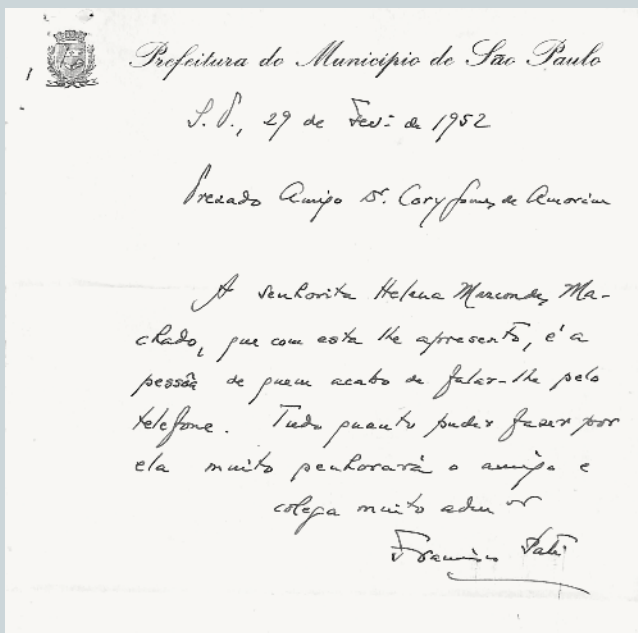 Prefeitura do Município de São Paulo
S. P., 29 de Fev. de 1952
Prezado Amigo Dr. Cory Gomes de Amorim
A senhorita Helena Marcondes Ma-
chado, que com esta lhe apresento, é a
pessôa de quem acabo de falar-lhe pelo
telefone. Tudo quanto puder fazer por
ela muito penhorará o amigo e
colega muito adm.or
Francisco Pati